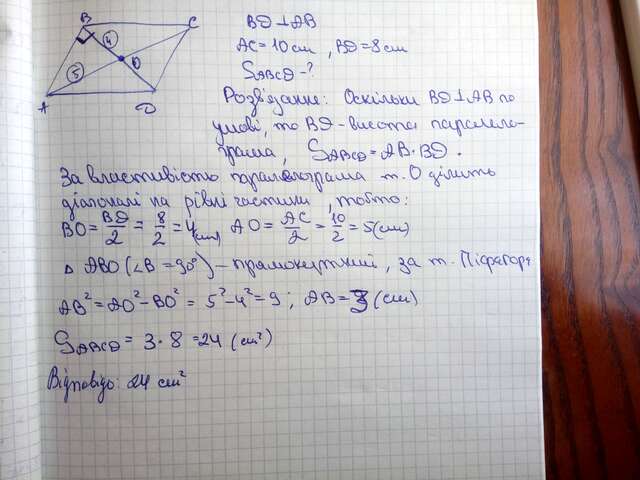 B C
4
O
5
A D
BD⊥AB
AC=10см, BD=8см
S ABCD-?
Розв'язання: Оскільки BD⊥AB по
умові, то BD-висота парамело-
грама, S ABCD=AB·BD.
За властивістю паралелограма т. О ділить
діагоналі на рівні частини, тобто:
BO=BD/2=8/2=4(см), AO=AC/2=10/2=5(см)
△ABO(∠B=90°)-прямокутний, за т. Піфагора
AB²=AO²-BO²=5²-4²=9; AB=3(см)
S ABCD=3·8=24(см²)
Відповідь: 24 см²